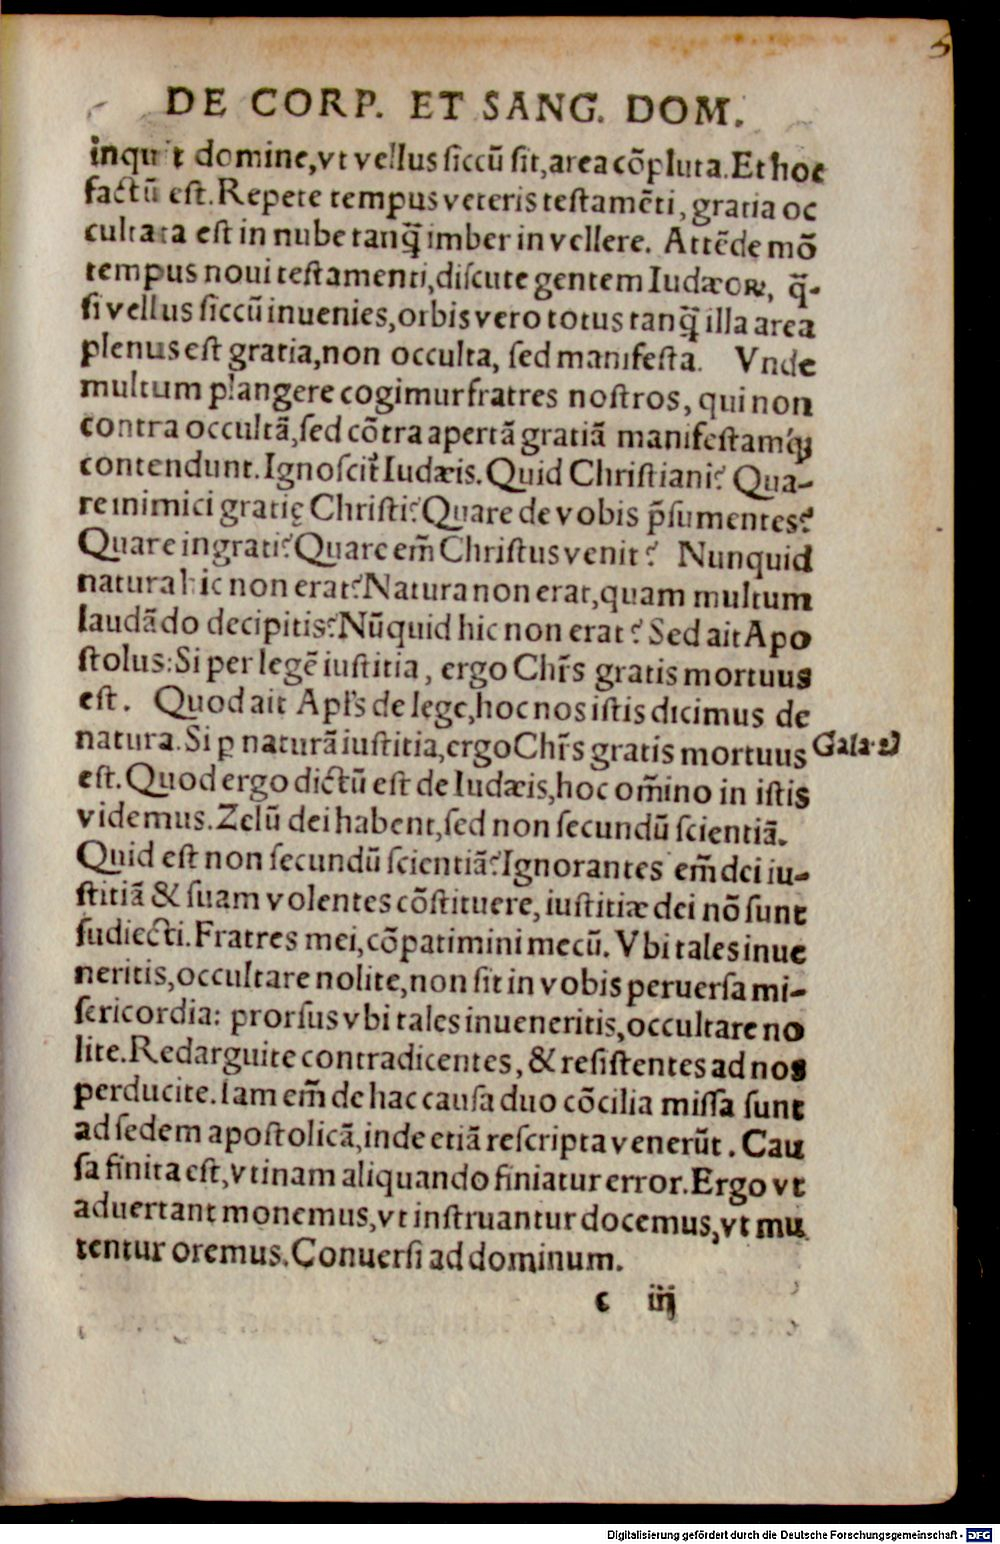 5
DE CORP. ET SANG. DOM.
inquit domine,vt vellus ſiccū ſit,area cōpluta.Et hoc
factū eſt.Repete tempus veteris teſtamēti, gratia oc
cultata eſt in nube tanq̄ imber in vellere. Attēde mō
tempus noui teſtamenti,diſcute gentem Iudæoꝝ, q̄-
ſi vellus ſiccū inuenies,orbis vero totus tanq̄ illa area
plenus eſt gratia,non occulta, ſed manifeſta. Vnde
multum plangere cogimur fratres noſtros, qui non
contra occultā,ſed cōtra apertā gratiā manifeſtamq́;
contendunt.Ignoſcit̃ Iudæis.Quid Chriſtiani? Qua-
re inimici gratię Chriſti?Quare de vobis p̄ſumentes?
Quare ingrati?Quare em̃ Chriſtus venit? Nunquid
natura hic non erat?Natura non erat,quam multum
laudādo decipitis?Nūquid hic non erat? Sed ait Apo
ſtolus:Si per legē iuſtitia, ergo Chr̃s gratis mortuus
eſt. Quod ait Apl̃s de lege,hoc nos iſtis dicimus de
natura.Si ꝑ naturā iuſtitia,ergo Chr̃s gratis mortuus Gala.2
eſt.Quod ergo dictū eſt de Iudæis,hoc om̃ino in iſtis
videmus.Zelū dei habent,ſed non ſecundū ſcientiā.
Quid eſt non ſecundū ſcientiā?Ignorantes em̃ dei iu-
ſtitiā & ſuam volentes cōſtituere, iuſtitiæ dei nō ſunt
ſudiecti.Fratres mei,cōpatimini mecū. Vbi tales inue
neritis,occultare nolite,non ſit in vobis peruerſa mi-
ſericordia: prorſus vbi tales inueneritis,occultare no
lite.Redarguite contradicentes, & reſiſtentes ad nos
perducite.Iam em̃ de hac cauſa duo cōcilia miſſa ſunt
ad ſedem apoſtolicā,inde etiā reſcripta venerūt. Cau
ſa finita eſt,vtinam aliquando finiatur error.Ergo vt
aduertant monemus,vt inſtruantur docemus,vt mu
tentur oremus.Conuerſi ad dominum.
c iij
Digitalisierung gefördert durch die Deutsche Forschungsgemeinschaft - DFG